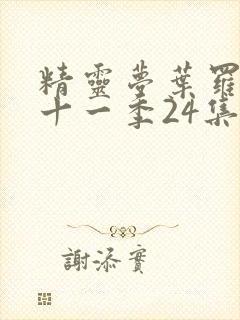 精靈夢葉羅
十一季24集
謝添實